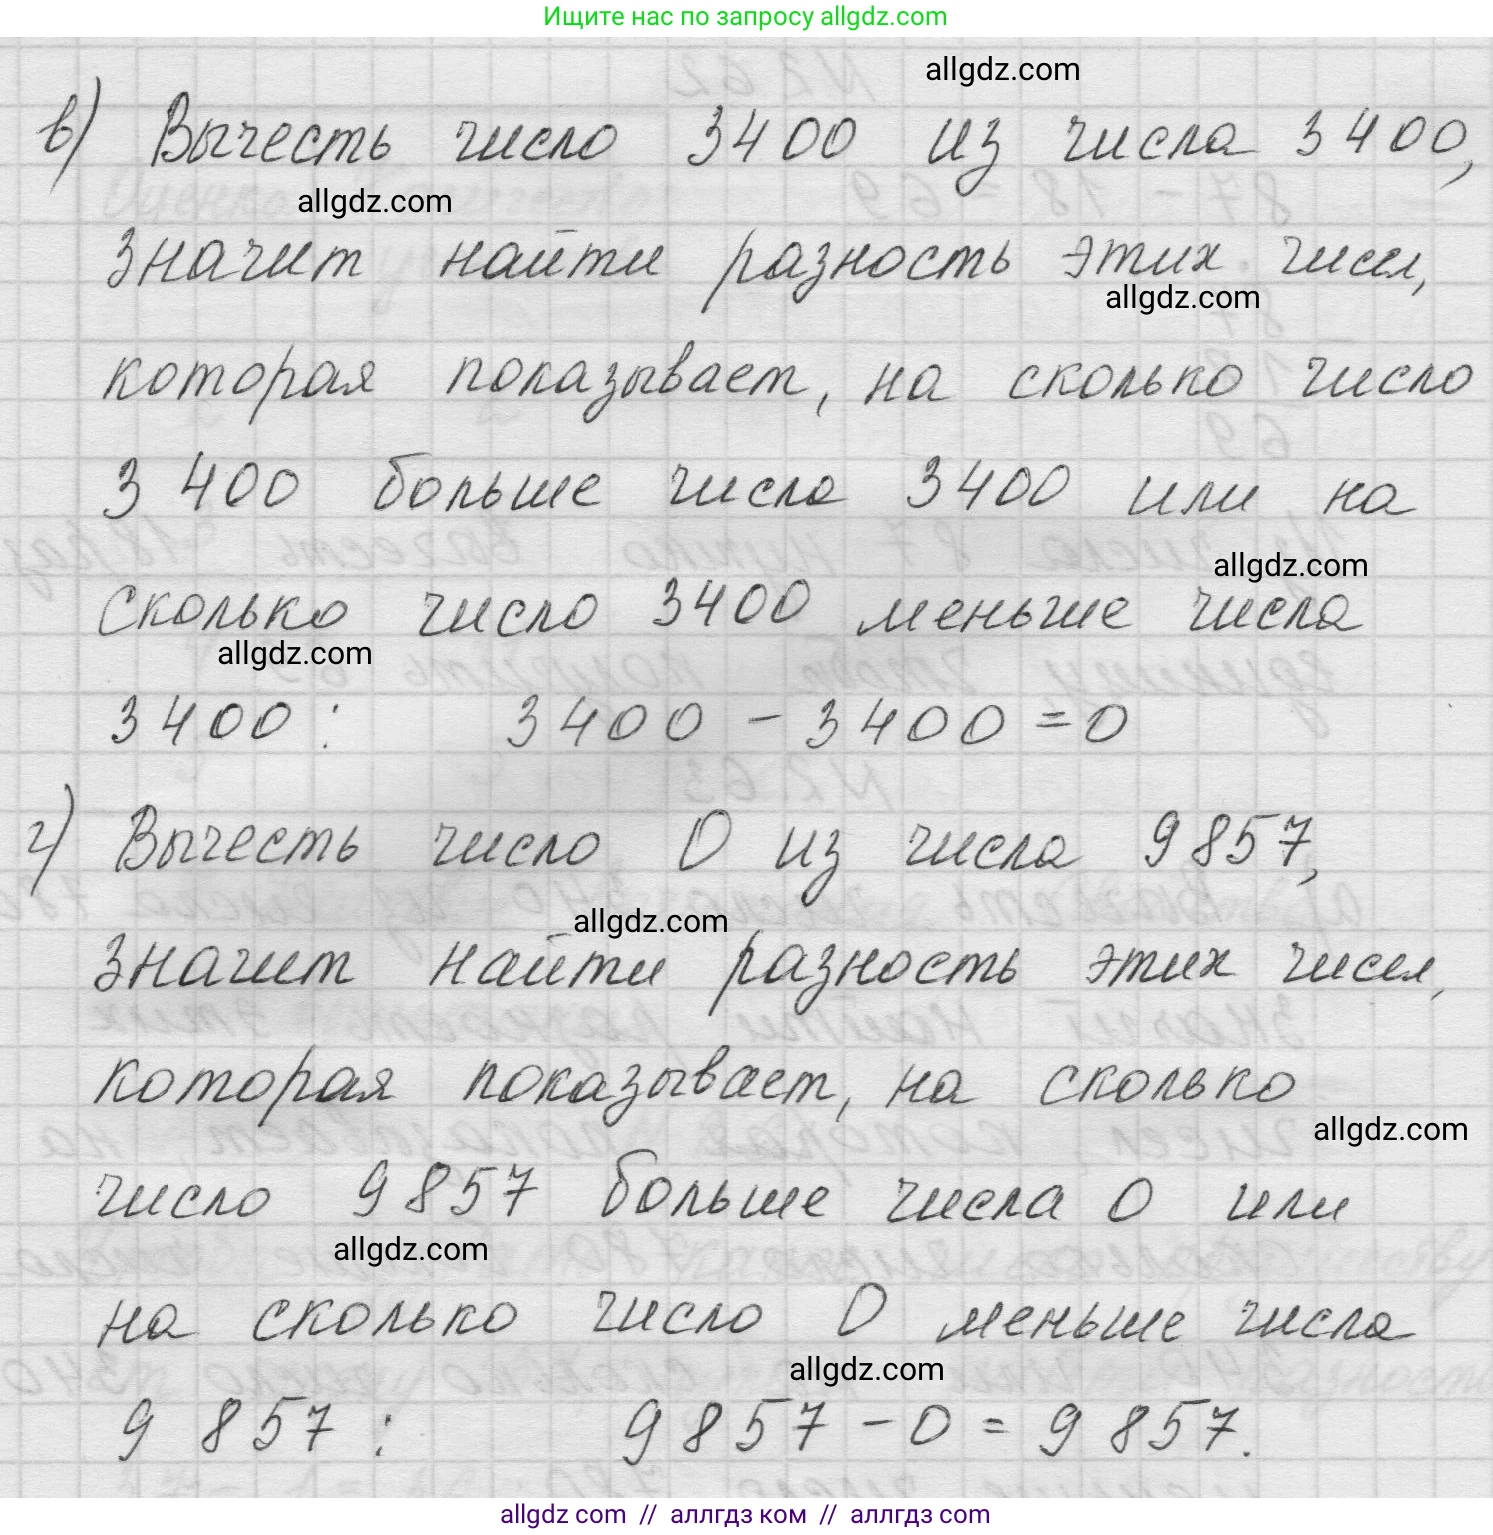 Ищите нас по запросу allgdz.com
allgdz.com
в) Вычесть число 3400 из числа 3400,
allgdz.com
значит найти разность этих чисел,
allgdz.com
которая показывает, на сколько число
3 400 больше числа 3400 или на
allgdz.com
сколько число 3400 меньше числа
allgdz.com
3400: 3400 - 3400 = 0
г) Вычесть число 0 из числа 9857,
allgdz.com
значит найти разность этих чисел,
которая показывает, на сколько
allgdz.com
число 9857 больше числа 0 или
allgdz.com
на сколько число 0 меньше числа
allgdz.com
9 857: 9857 - 0 = 9 857.
allgdz.com // аллгдз ком // аллгдз com